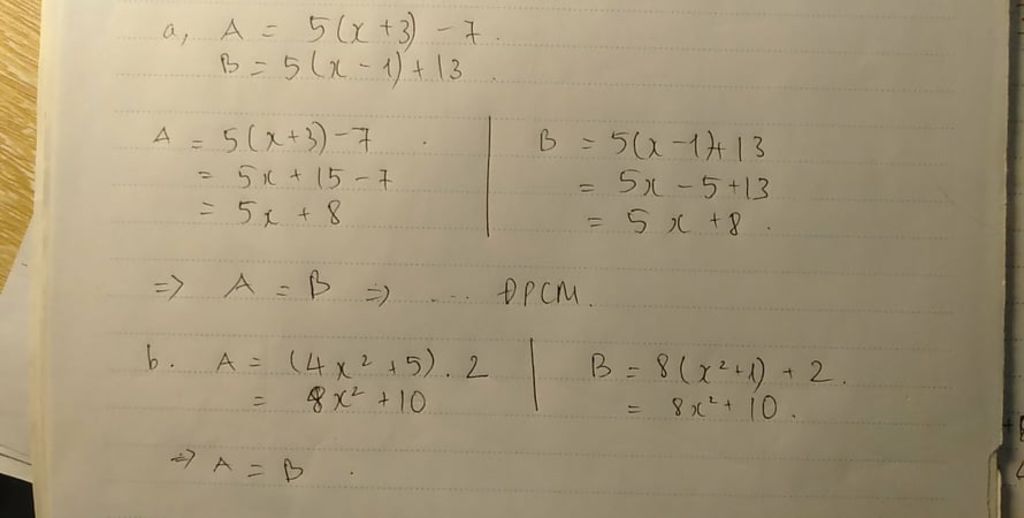 a, A = 5(x+3) - 7.
B = 5(x - 1) + 13.
A = 5(x+3) - 7
= 5x + 15 - 7
= 5x + 8
B = 5(x - 1) + 13
= 5x - 5 + 13
= 5x + 8.
=> A = B => .... ĐPCM.
b. A = (4x² + 5) . 2
= 8x² + 10
B = 8(x² + 1) + 2.
= 8x² + 10.
=> A = B.